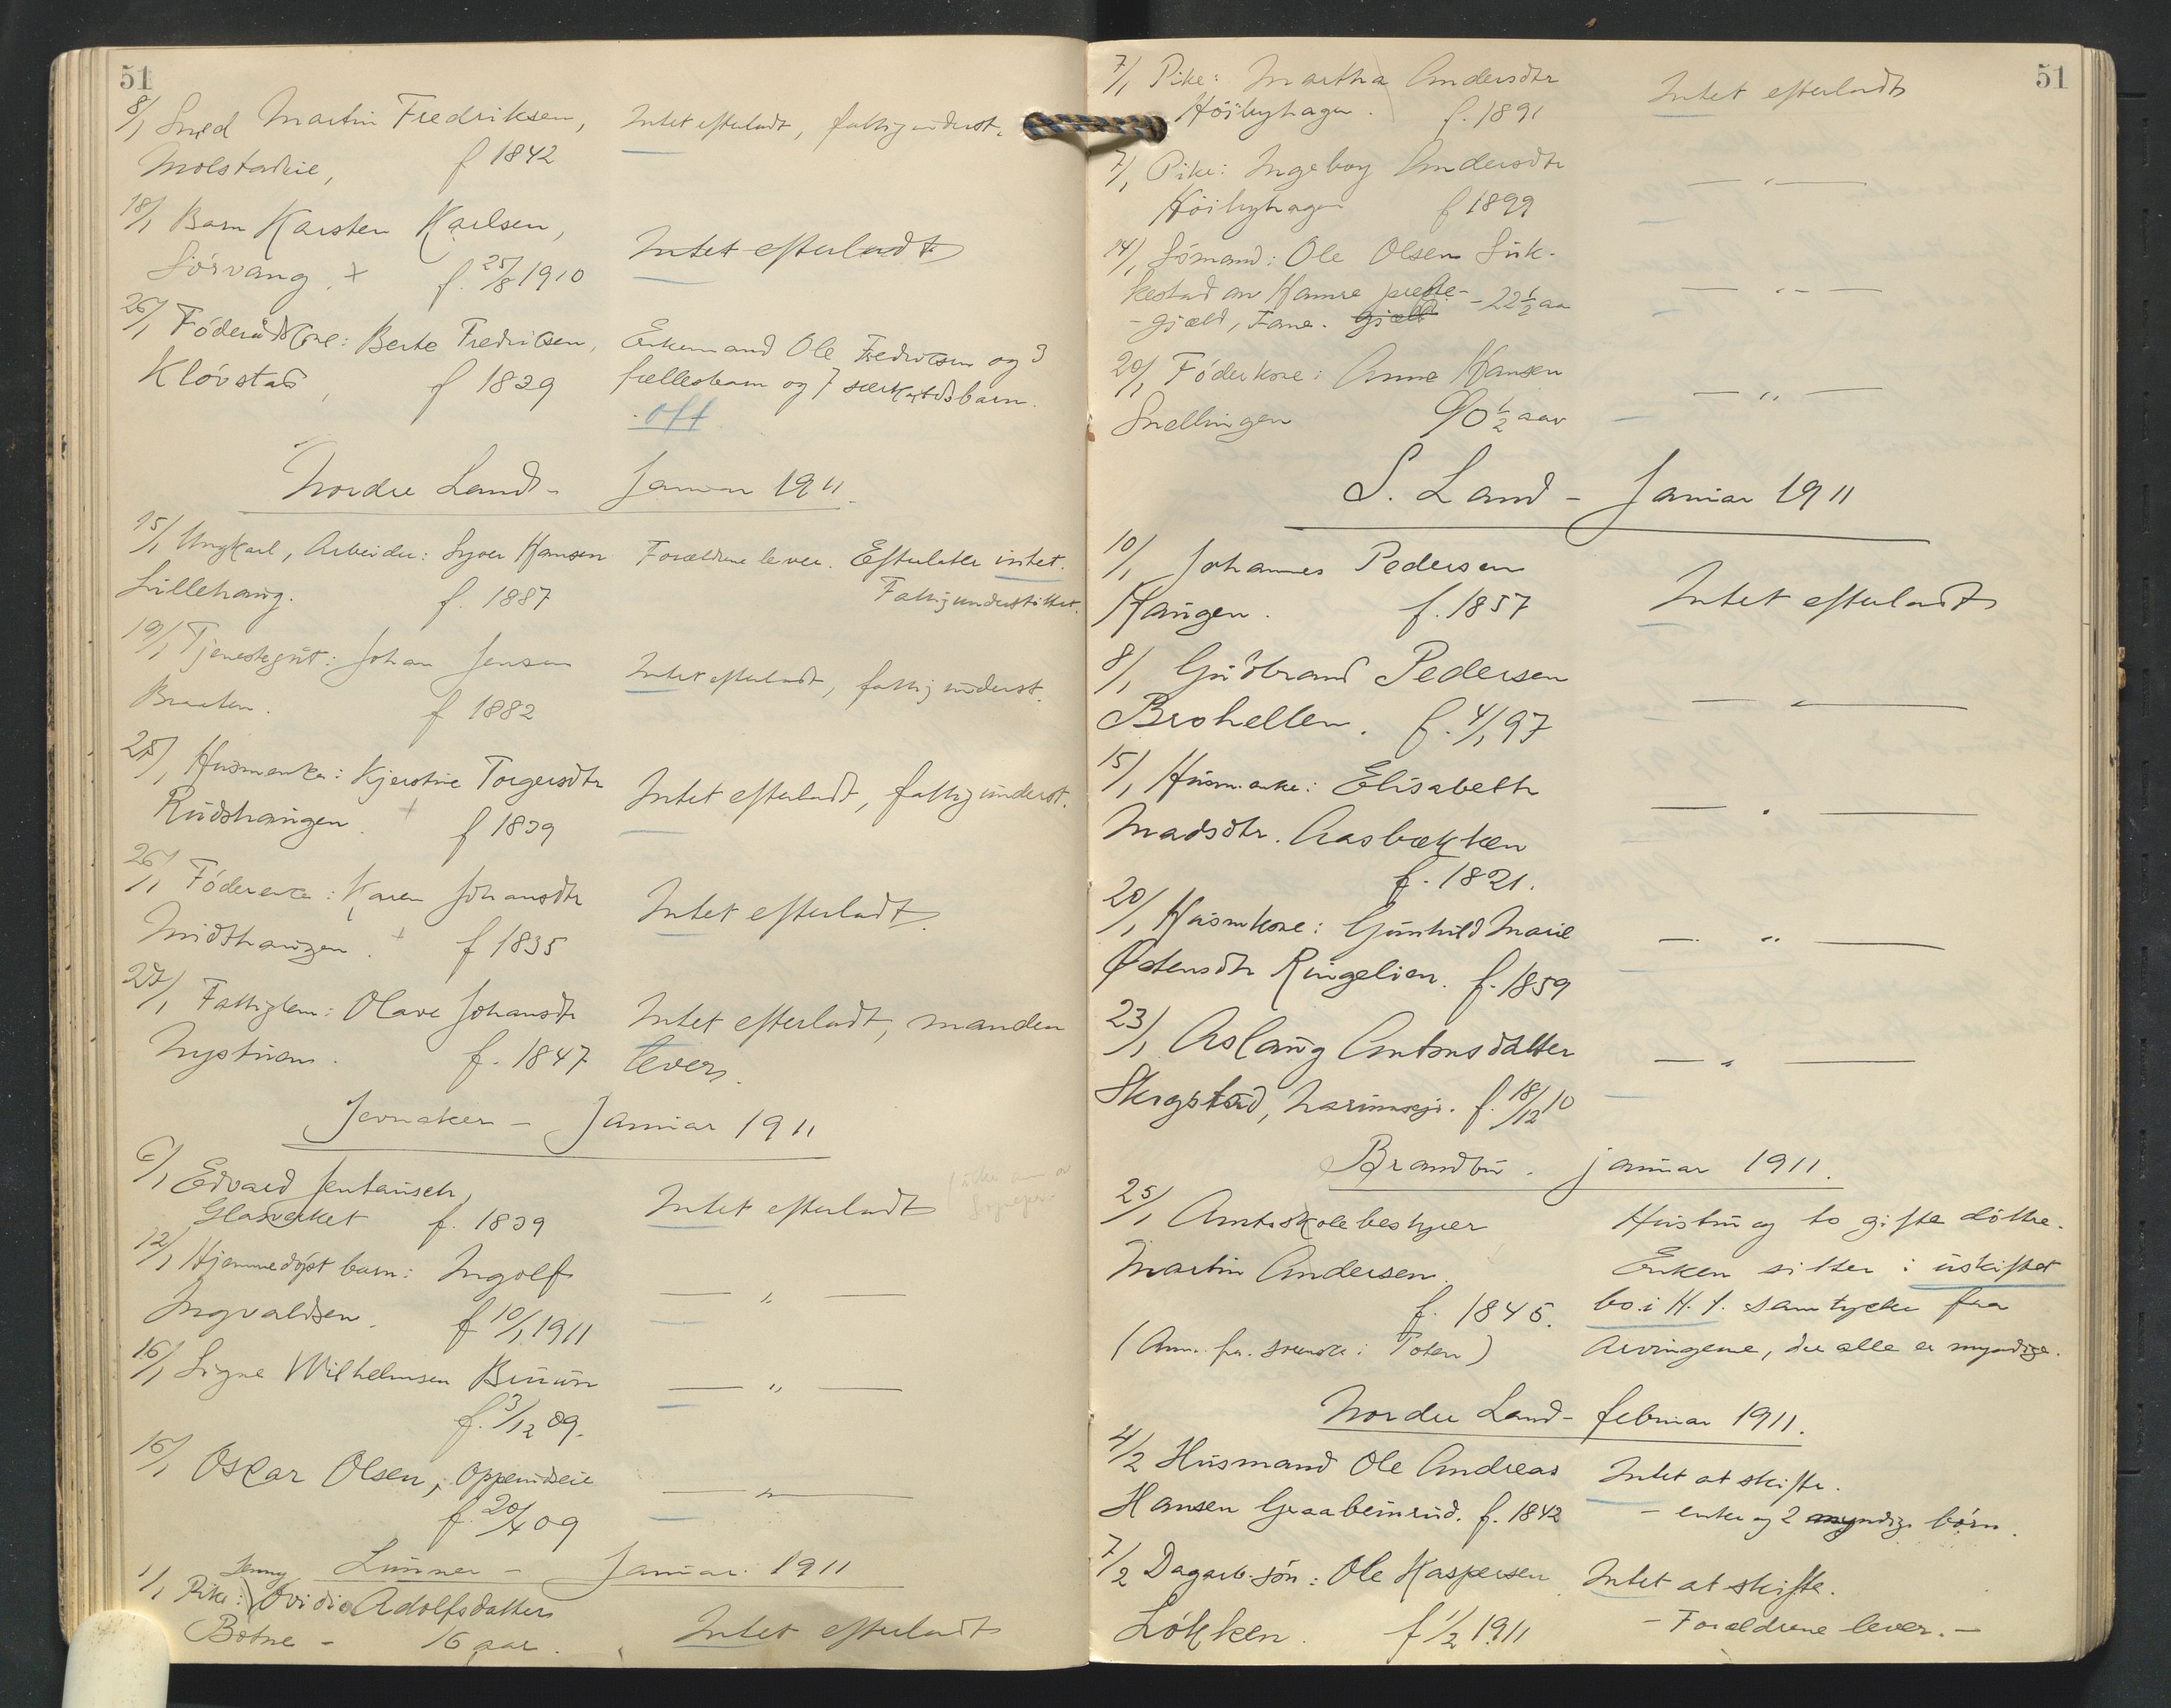 51
8/1 Smed Martin Fredriksen, Intet efterladt, fattigunderst.
Molstadeie, f 1842
18/1 Barn Karsten Karlsen,
Sörvang. + f. 25/8 1910 Intet efterladt
26/1 Föderådskone: Berte Fredriksen, Enkemand Ole Fredriksen og 3
Klövstad, f 1829 fællesbarn og 7 særkuldsbarn.
off
Nordre Land - Januar 1911.
15/1 Ungkarl, Arbeider: Syver Hansen Forældrene lever. Efterlater intet.
Lillehaug. f. 1887 Fattigunderstöttet.
19/1 Tjenestegut: Johan Jensen Intet efterladt, fattigunderst.
Braaten. f 1882
25/1 Husmenke: Kjerstine Torgersdtr Intet efterladt, fattigunderst.
Rudshaugen. + f 1839
26/1 Föderenke: Karen Johansdtr Intet efterladt.
Midthaugen. + f 1835
27/1 Fattiglem: Olave Johansdtr Intet efterladt, manden
Nystuen. f. 1847 lever.
Jevnaker - Januar 1911
6/1 Edvard Jentausch,
Glasverket f. 1839 Intet efterladt
12/1 Hjemmedøpt barn: Ingolf
Ingvaldsen. f 10/1 1911 — " —
16/1 Signe Wilhelmsen Buun — " —
f. 3/12 09.
16/1 Oscar Olsen, Oppeneie — " —
f. 20/4 09
Lunner - Januar 1911
1/1 Pike: Jenny Ovidie Adolfsdatter
Botne - 16 aar. Intet efterladt
51
7/1 Pike: Martha Andersdtr Intet efterladt
Höibyhagen. f. 1891
7/1 Pike: Ingeborg Andersdtr — " —
Höibyhagen f 1899
14/1 Sömand: Ole Olsen Suk-
kestad av Hamre preste- - 22½ aa — " —
- gjæld, Fane. gjæld
20/1 Föderkone: Anne Hansen — " —
Snellingen 90½ aar
S. Land - Januar 1911
10/1 Johannes Pedersen
Haugen. f. 1857 Intet efterladt
8/1 Gudbrand Pedersen
Brohellen. f. 4/1 97 — " —
15/1 Husm.enke: Elisabeth
Madsdtr. Aasbækken — " —
f. 1821.
20/1 Husmkone: Gunhild Marie — " —
Østensdtr Ringelien. f. 1859
23/1 Aslaug Antonsdatter — " —
Skrgstad, f. 18/12 10
Brandbu. januar 1911.
25/1 Amtsskolebestyrer Hustru og to gifte döttre.
Martin Andersen. Enken sitter i uskiftet
f. 1845. bo i H. t. samtycke fra
(Anm. fra i Toten) Arvingerne, der alle er myndige.
Nordre Land - februar 1911.
4/2 Husmand Ole Andreas Intet at skifte.
Hansen Graabeinrud. f. 1842 - enke og 2 myndige börn.
7/2 Dagarb. sön: Ole Kaspersen Intet at skifte.
Lökken. f 1/2 1911 - Forældrene lever. -